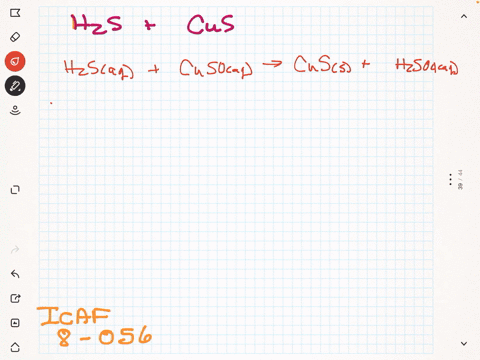 H₂S + CuS
H₂S(aq) + CuSO(aq) → CuS(s) + H₂SO4(aq)
17 / 36
ICAF
8-056